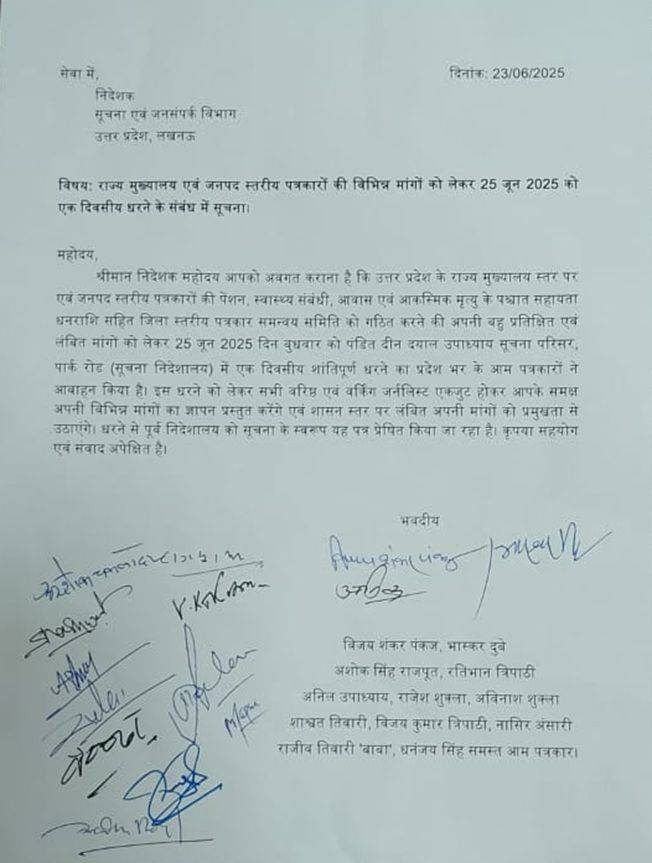 सेवा में,
दिनांक: 23/06/2025
निदेशक
सूचना एवं जनसंपर्क विभाग
उत्तर प्रदेश, लखनऊ
विषय: राज्य मुख्यालय एवं जनपद स्तरीय पत्रकारों की विभिन्न मांगों को लेकर 25 जून 2025 को
एक दिवसीय धरने के संबंध में सूचना।
महोदय,
श्रीमान निदेशक महोदय आपको अवगत कराना है कि उत्तर प्रदेश के राज्य मुख्यालय स्तर पर
एवं जनपद स्तरीय पत्रकारों की पेंशन, स्वास्थ्य संबंधी, आवास एवं आकस्मिक मृत्यु के पश्चात सहायता
धनराशि सहित जिला स्तरीय पत्रकार समन्वय समिति को गठित करने की अपनी बहु प्रतिक्षित एवं
लंबित मांगों को लेकर 25 जून 2025 दिन बुधवार को पंडित दीन दयाल उपाध्याय सूचना परिसर,
पार्क रोड (सूचना निदेशालय) में एक दिवसीय शांतिपूर्ण धरने का प्रदेश भर के आम पत्रकारों ने
आवाहन किया है। इस धरने को लेकर सभी वरिष्ठ एवं वर्किंग जर्नलिस्ट एकजुट होकर आपके समक्ष
अपनी विभिन्न मांगों का ज्ञापन प्रस्तुत करेंगे एवं शासन स्तर पर लंबित अपनी मांगों को प्रमुखता से
उठाएंगे। धरने से पूर्व निदेशालय को सूचना के स्वरूप यह पत्र प्रेषित किया जा रहा है। कृपया सहयोग
एवं संवाद अपेक्षित है।
भवदीय
विजय शंकर पंकज, भास्कर दुबे
अशोक सिंह राजपूत, रतिभान त्रिपाठी
अनिल उपाध्याय, राजेश शुक्ला, अविनाश शुक्ला
शाश्वत तिवारी, विजय कुमार त्रिपाठी, नासिर अंसारी
राजीव तिवारी 'बाबा', धनंजय सिंह समस्त आम पत्रकार।